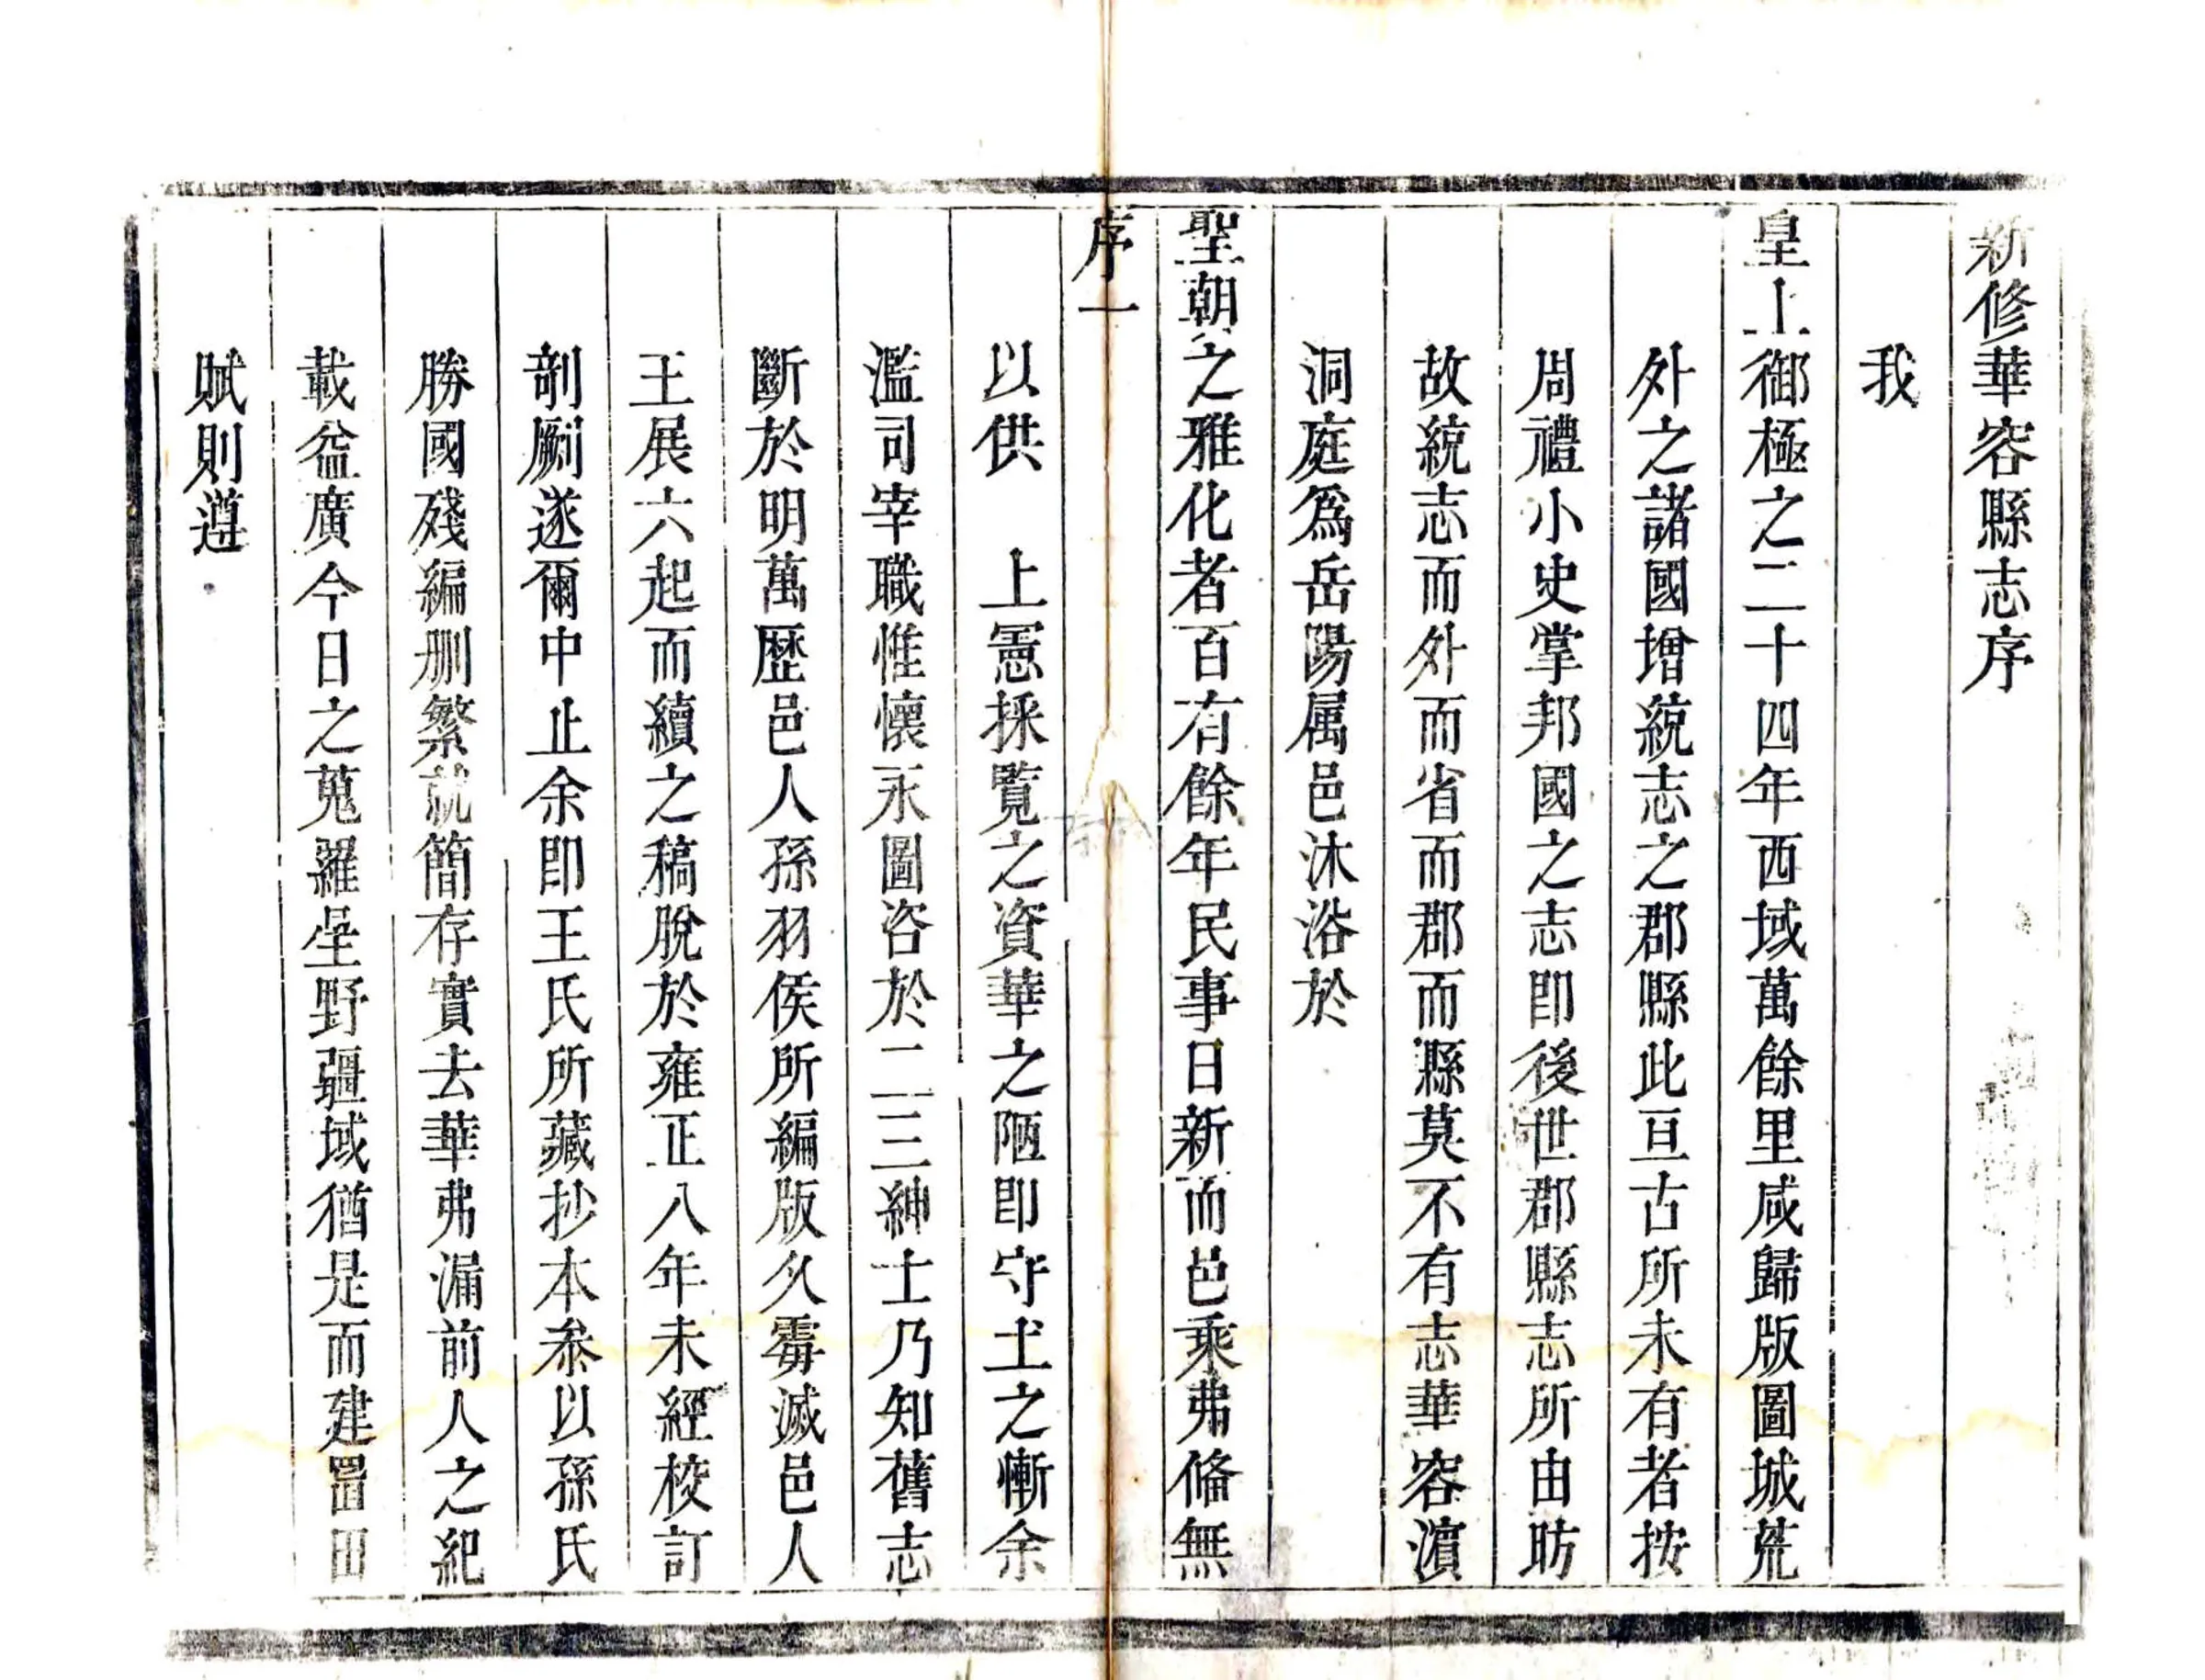 新修華容縣志序
我
皇上御極之二十四年西域萬餘里咸歸版圖城茺
外之諸國增統志之郡縣此亘古所未有者按
周禮小史掌邦國之志卽後世郡縣志所由昉
故統志而外而省而郡而縣莫不有志華容濵
洞庭爲岳陽属邑沐浴於
聖朝之雅化者百有餘年民事日新而邑乘弗脩無
序一
以供　上憲採覽之資華之陋卽守土之慚余
濫司宰職惟懷永圖咨於二三紳士乃知舊志
斷於明萬歷邑人孫羽侯所編版久霉滅邑人
王展六起而續之稿脫於雍正八年未經校訂
剞劂遂爾中止余卽王氏所藏抄本叅以孫氏
勝國殘編刪繁就簡存實去華弗漏前人之紀
載益廣今日之蒐羅星野疆域猶是而建置田
賦則遵